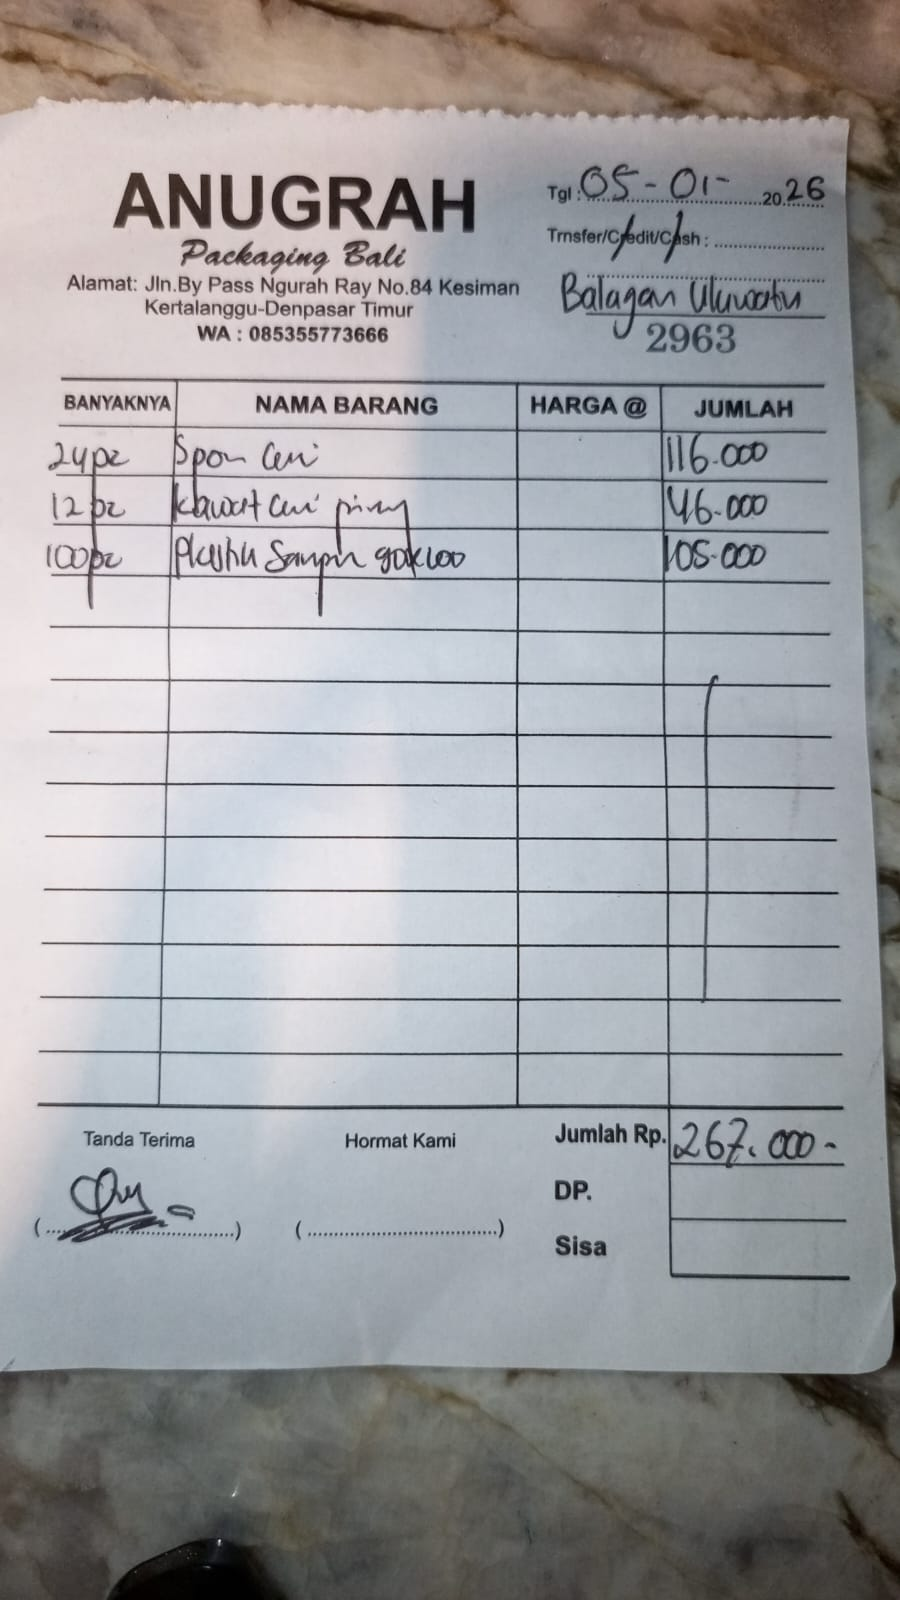 ANUGRAH
Packaging Bali
Alamat: Jln.By Pass Ngurah Ray No.84 Kesiman
Kertalanggu-Denpasar Timur
WA : 085355773666
Tgl : 05-01- 2026
Trnsfer/Credit/Cash :
Balagan Uluwatu
2963
BANYAKNYA NAMA BARANG HARGA @ JUMLAH
24pc Spon Ceni 116.000
12pc Kawat Ceni piring 46.000
100pc Plastik Sampah 90x100 105.000
Tanda Terima Hormat Kami Jumlah Rp. 267.000-
DP.
(..........) (..........)
Sisa